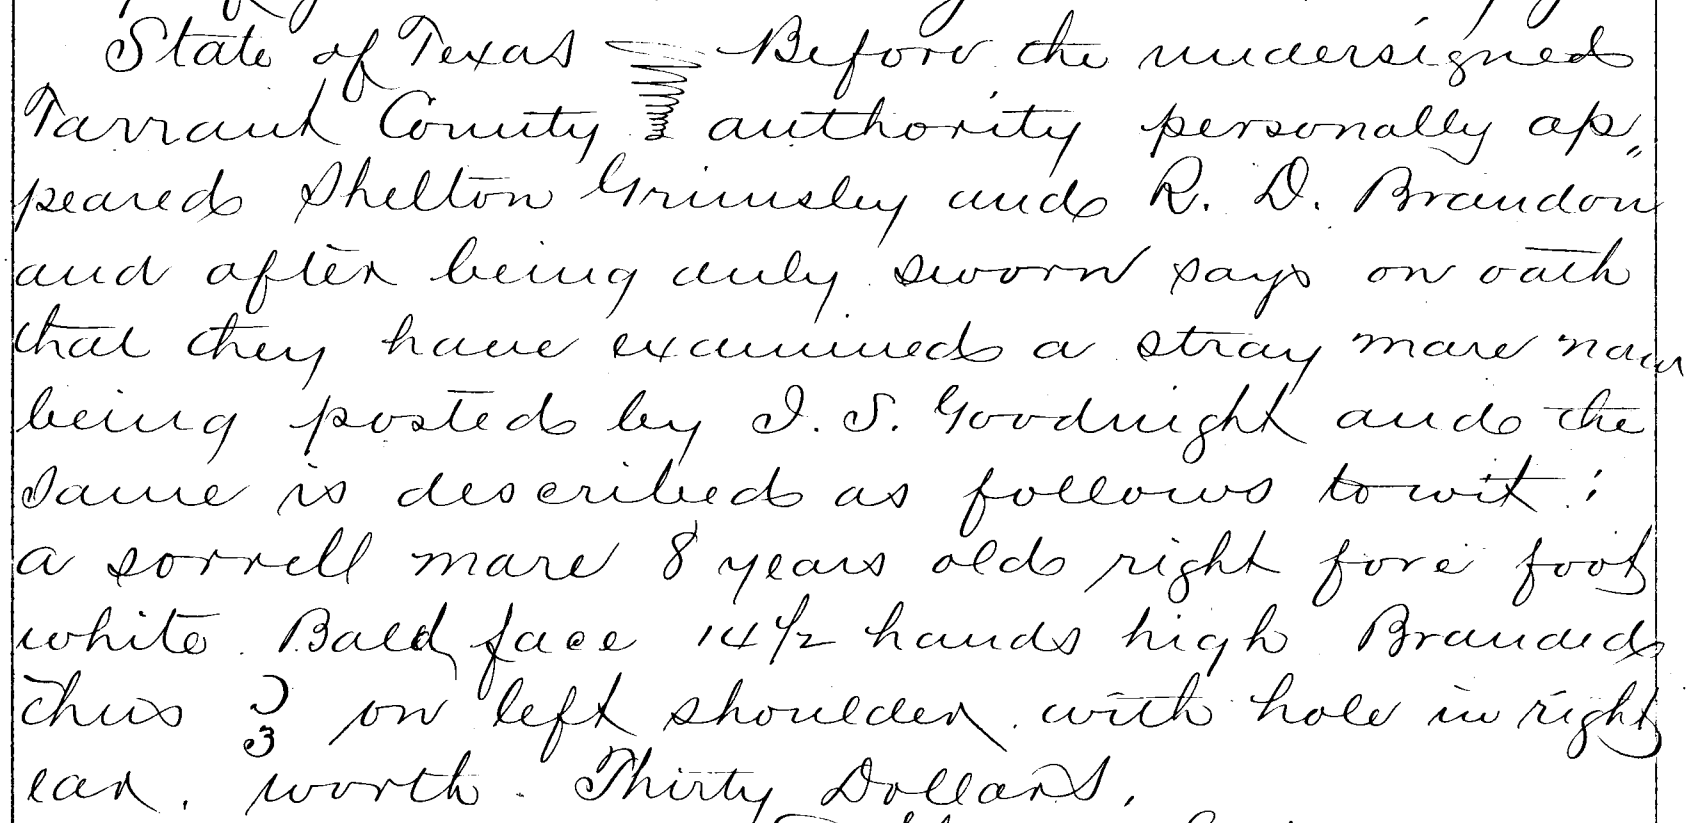 State of Texas Before the undersigned
Tarrant County authority personally ap„
peared Shelton Grimsley and R. D. Brandon
and after being duly sworn says on oath
that they have examined a stray mare now
being posted by I. S. Goodnight and the
same is described as follows towit :
a sorrell mare 8 years old right fore foot
white. Bald face 14 1/2 hands high Branded
thus on left shoulder. with hole in right
ear. worth. Thirty Dollars.